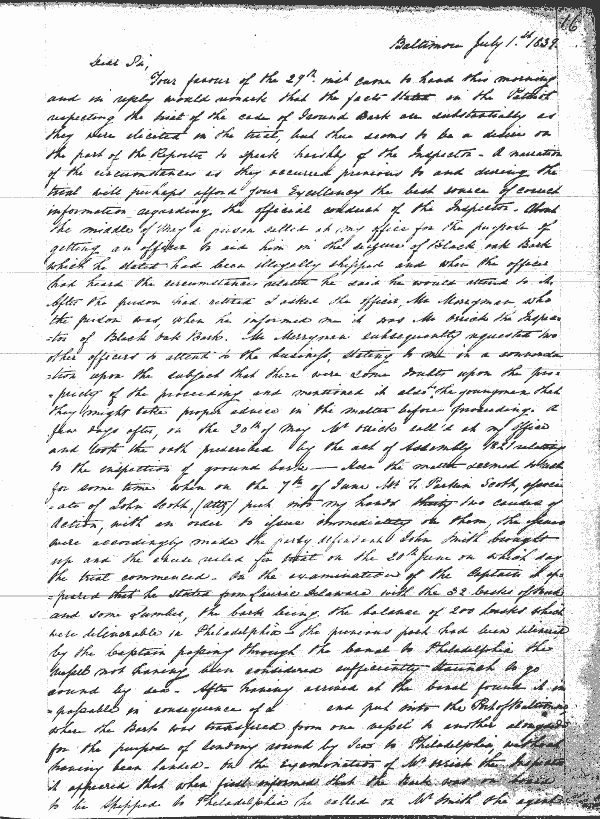 16
Baltimore July 1.st 1839.
Dear Sir,
Your favour of the 29th inst came to hand this morning
and in reply would remark that the facts stated in the Patriot
respecting the trial of the case of Ground Bark are substantially as
they were elicited in the trial, but there seems to be a desire on
the part of the Reporter to speak harshly of the Inspector - A narration
of the circumstances as they occurred previous to and during the
trial will perhaps afford your Excellency the best source of correct
information regarding the official conduct of the Inspector. About
the middle of May a person called at my office for the purpose of
getting an officer to aid him in the seizure of Black oak Bark
which he stated had been illegally shipped and when the officer
had heard the circumstances related he said he would attend to it.
After the person had retired I asked the officer, Mr Merryman, who
the person was, when he informed me it was Mr Orrick the Inspec
-tor of Black oak Bark. Mr Merryman subsequently requested two
other officers to attend to the business, stating to me in a conversa
-tion upon the subject that there were some doubts upon the pro=
=priety of the proceeding and mentioned it also to the young men that
they might take proper advice in the matter before proceeding. A
few days after, on the 20th of May Mr Orrick call'd at my office
and took the oath prescribed by the act of Assembly 1821 relating
to the inspection of ground bark — Here the matter seemed to rest
for some time when on the 7th of June Mr T. Parkin Scott, associ
-ate of John Scott, (atty) put into my hands two causes of
Action, with an order to issue immediately on them, the
were accordingly made the party defendant John Smith brought
up and the cause ruled for trial on the 20th June on which day
the trial commenced - On the examination of the Captain it ap=
=peared that he started from Laurie Delaware with the 32 casks of Bark
and some Lumber, the bark being the balance of 200 casks which
were deliverable in Philadelphia - the previous part had been delivered
by the Captain passing through the canal to Philadelphia the
Vessel not having been considered sufficiently staunch to go
round by sea - After having arrived at the canal found it im
=passable in consequence of a and put into the Port of Baltimore
where the Bark was transfered from one vessel to another alongside
for the purpose of sending round by Sea to Philadelphia, without
having been landed - On the examination of Mr Orrick the Inspector
it appeared that when first informed that the Bark was on board
to be shipped to Philadelphia he called on Mr Smith the agent